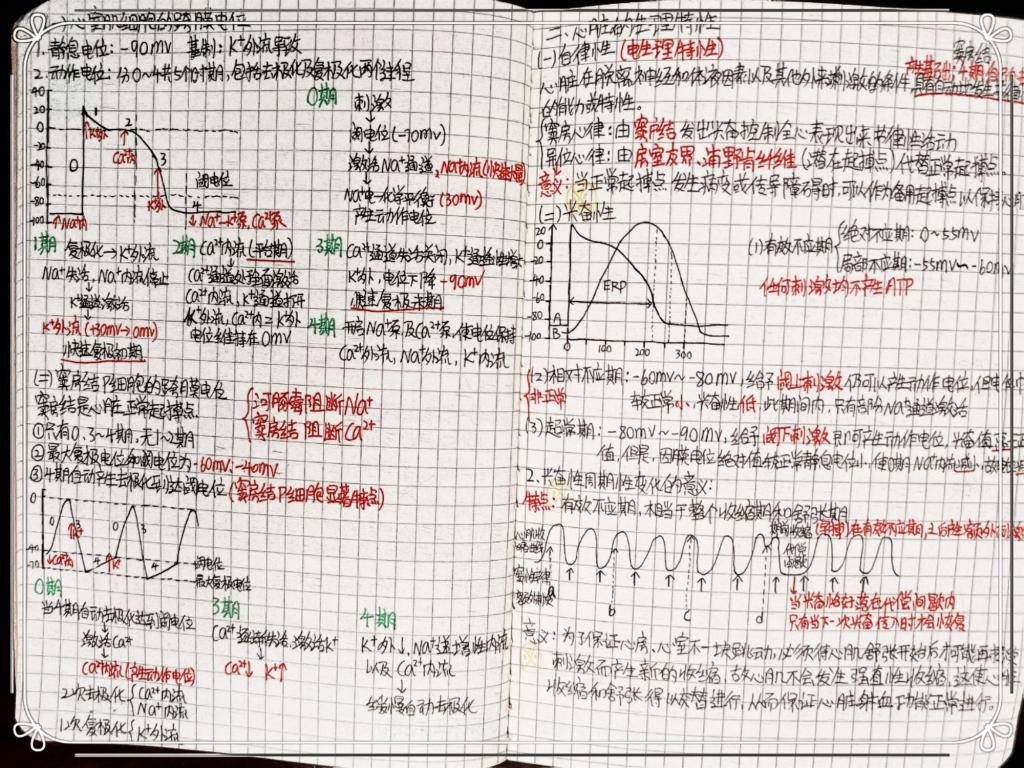 心室肌细胞的跨膜电位
1.静息电位：-90mv 机制：K⁺外流导致
2.动作电位：分0~4共5个时期，包括去极化及复极化两个过程
40
20
0
-20
-40
-60
-80
-100
0
1
2
3
4
K⁺外
Ca²⁺内
K⁺外
↑Na⁺内
阈电位
↓Na⁺-K⁺泵，Ca²⁺泵
0期
刺激
阈电位(-70mv)
激活Na⁺通道，Na⁺内流(少快钠增)
Na⁺电-化学平衡(30mv)
产生动作电位
1期
复极化→K⁺外流
Na⁺失活，Na⁺内流停止
K⁺通道激活
K⁺外流(+30mv→0mv)
快速复极初期
2期
Ca²⁺内流(平台期)
Ca²⁺通道处全面激活
Ca²⁺内流，K⁺通道打开
K⁺外流，Ca²⁺内=K⁺外
电位维持在0mv
3期
Ca²⁺通道失活关闭，K⁺通透性增大
K⁺外，电位下降-90mv
快速复极末期
4期
开启Na⁺泵及Ca²⁺泵，使电位保持
Ca²⁺外流，Na⁺外流，K⁺内流
(二)窦房结P细胞的跨膜电位
窦房结是心脏正常起搏点.
{河豚毒阻断Na⁺
窦房结阻断Ca²⁺
①只有0、3~4期，无1~2期
②最大复极电位和阈电位为-60mv、-40mv
③4期自动产生去极化到达阈电位(窦房结P细胞显著特点)
0
-40
-70
0
3
4
0
3
4
↓Ca²⁺内
K⁺
阈电位
最大复极电位
0期
当4期自动去极化达到阈电位
激活Ca²⁺
Ca²⁺内流(产生动作电位)
2次去极化{Ca²⁺内流
Na⁺内流
1次复极化{K⁺外流
3期
Ca²⁺通道失活，激活K⁺
Ca²⁺↓ K⁺↑
4期
K⁺外↓，Na⁺递增性内流
以及Ca²⁺内流
缓慢自动去极化
二、心脏的生理特性
(一)自律性(电生理特性)
窦房结
心脏在脱离神经和体液因素以及其他外来刺激的条件，具有自动地发生
的能力或特性。
{窦房心律：由窦房结发出兴奋控制全心表现出来节律性活动
异位心律：由房室交界、浦野肯纤维(潜在起搏点)代替正常起搏点.
意义：当正常起搏点发生病变或传导障碍时，可以作为备用起搏点，以保持心
(二)兴奋性
20
0
-20
-40
-60
-80
A
B
ERP
0
100
200
300
(1)有效不应期{绝对不应期：0~-55mv
局部不应期：-55mv~-60mv
任何刺激均不产生ATP
(2)相对不应期：-60mv~-80mv，给予阈上刺激仍可以产生动作电位，但其
非正常
较正常小，兴奋性低，此期间内，只有部份Na⁺通道激活
(3)起常期：-80mv~-90mv，给予阈下刺激即可产生动作电位，兴奋值
值，但是，因膜电位绝对值较正常静息电位小，使0期Na⁺内流减小，
2.兴奋性周期性变化的意义：
特点：有效不应期，相当于整个收缩期和舒张早期
期前收缩(早搏)在有效不应期之后产生
代偿间歇
a
b
c
d
当兴奋恰好落在代偿间歇内
只有当下一次兴奋传入时才恢复
意义：为了保证心房、心室不一块跳动，必须待心肌舒张开始后才可能再接受
刺激而产生新的收缩，故心肌不会发生强直性收缩，这使心脏
收缩和舒张得以交替进行，从而保证心脏射血功能正常进行。